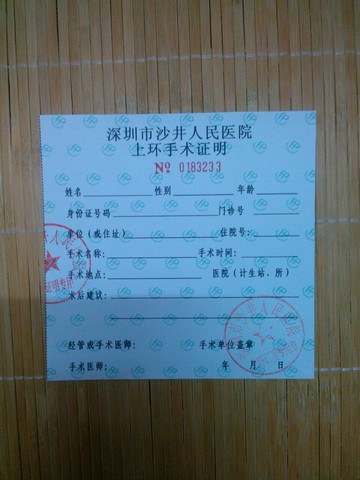 深圳市沙井人民医院
上环手术证明
№ 0183233
姓名 性别 年龄
身份证号码 门诊号
单位（或住址） 住院号：
手术名称： 手术时间：
手术地点： 医院（计生站、所）
术后建议：
经管或手术医师： 手术单位盖章
手术医师： 年 月 日